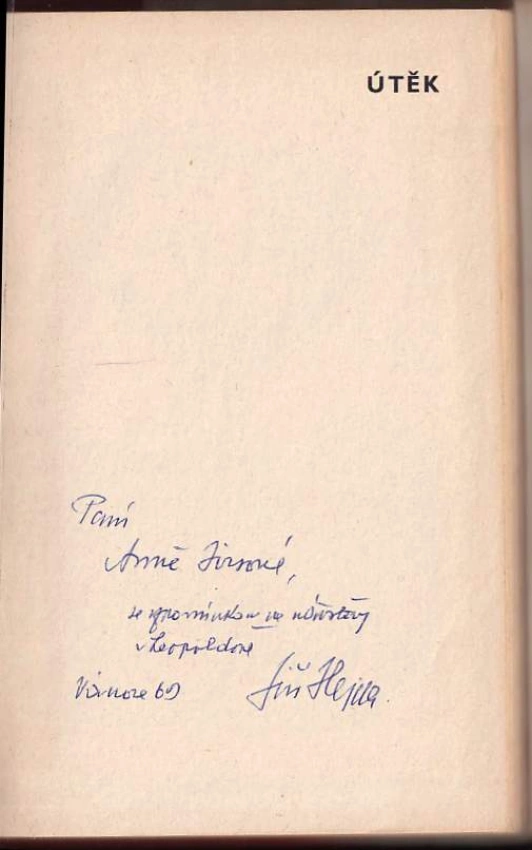 ÚTĚK
Paní
Anně Jirsové,
se vzpomínkou na návštěvy
v Leopoldově
Vánoce 69
Jiří Hejda.